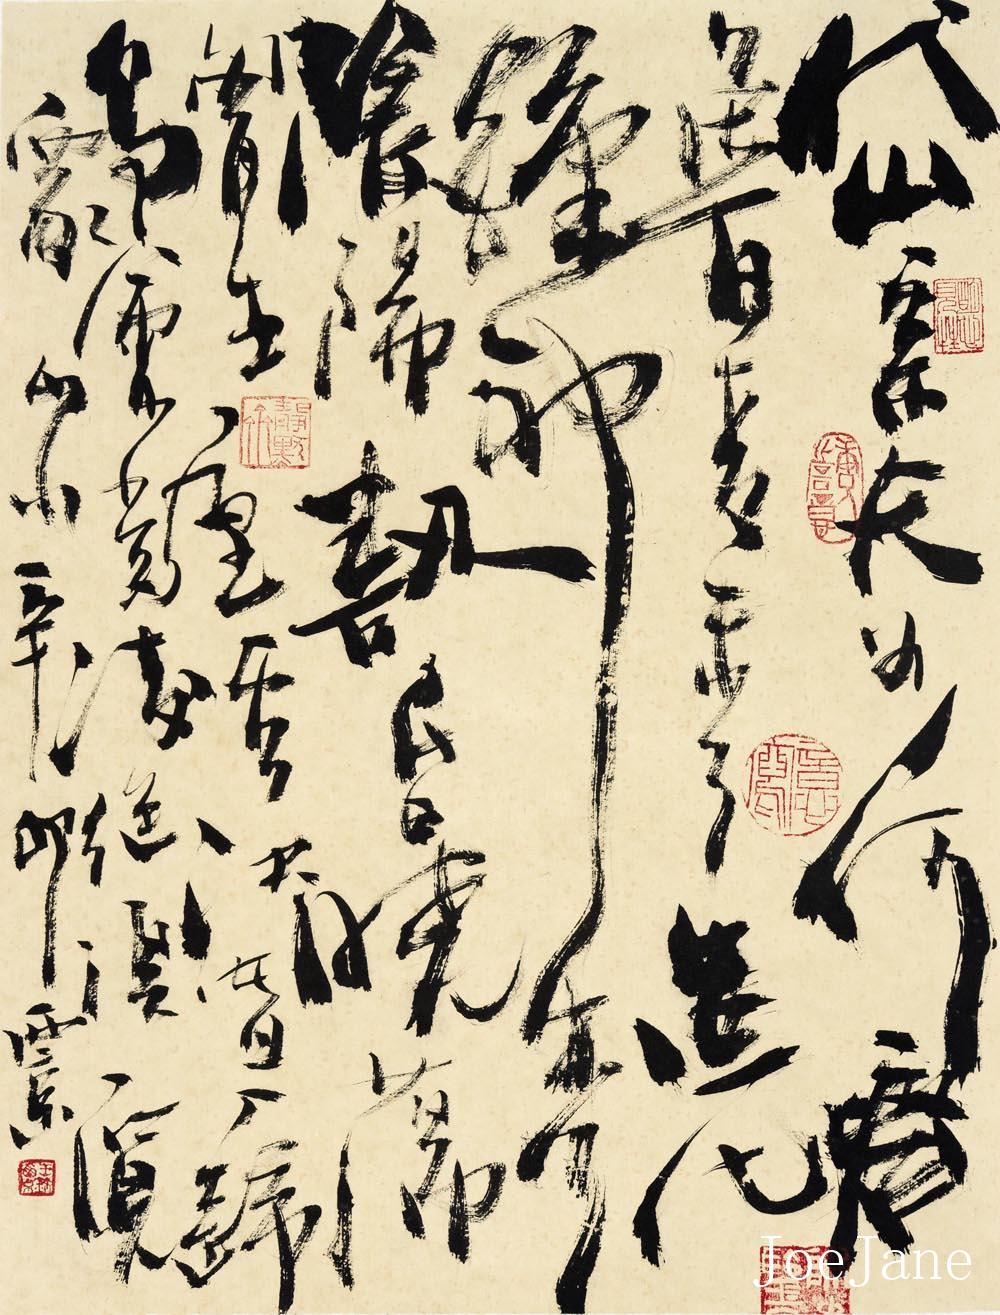 岱宗夫如何齊
魯青未了造化
鍾神秀
陰陽割昏曉蕩
胸生層雲決眥入歸
鳥會當凌絕頂一覽
眾山小 辛卯
JoeJane